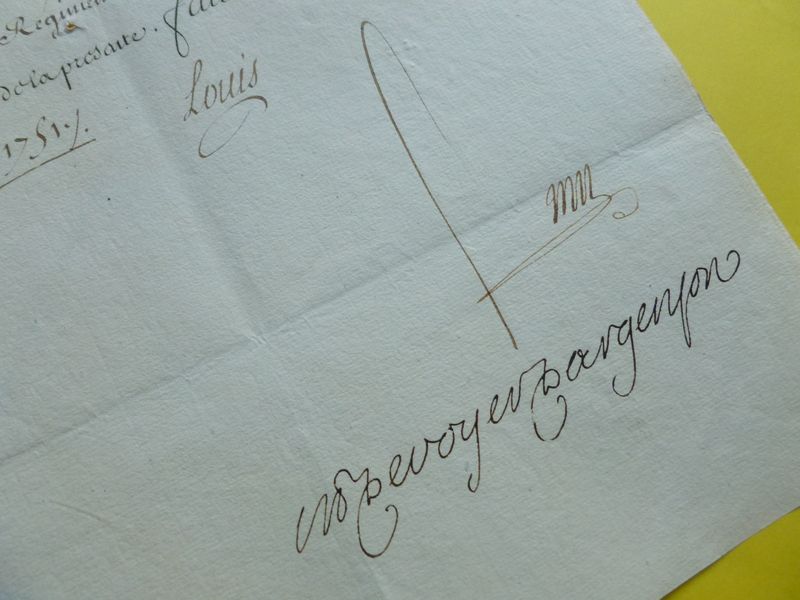 Regiment
de la presente. fait
1751./.
Louis
M de voyer d'argenson